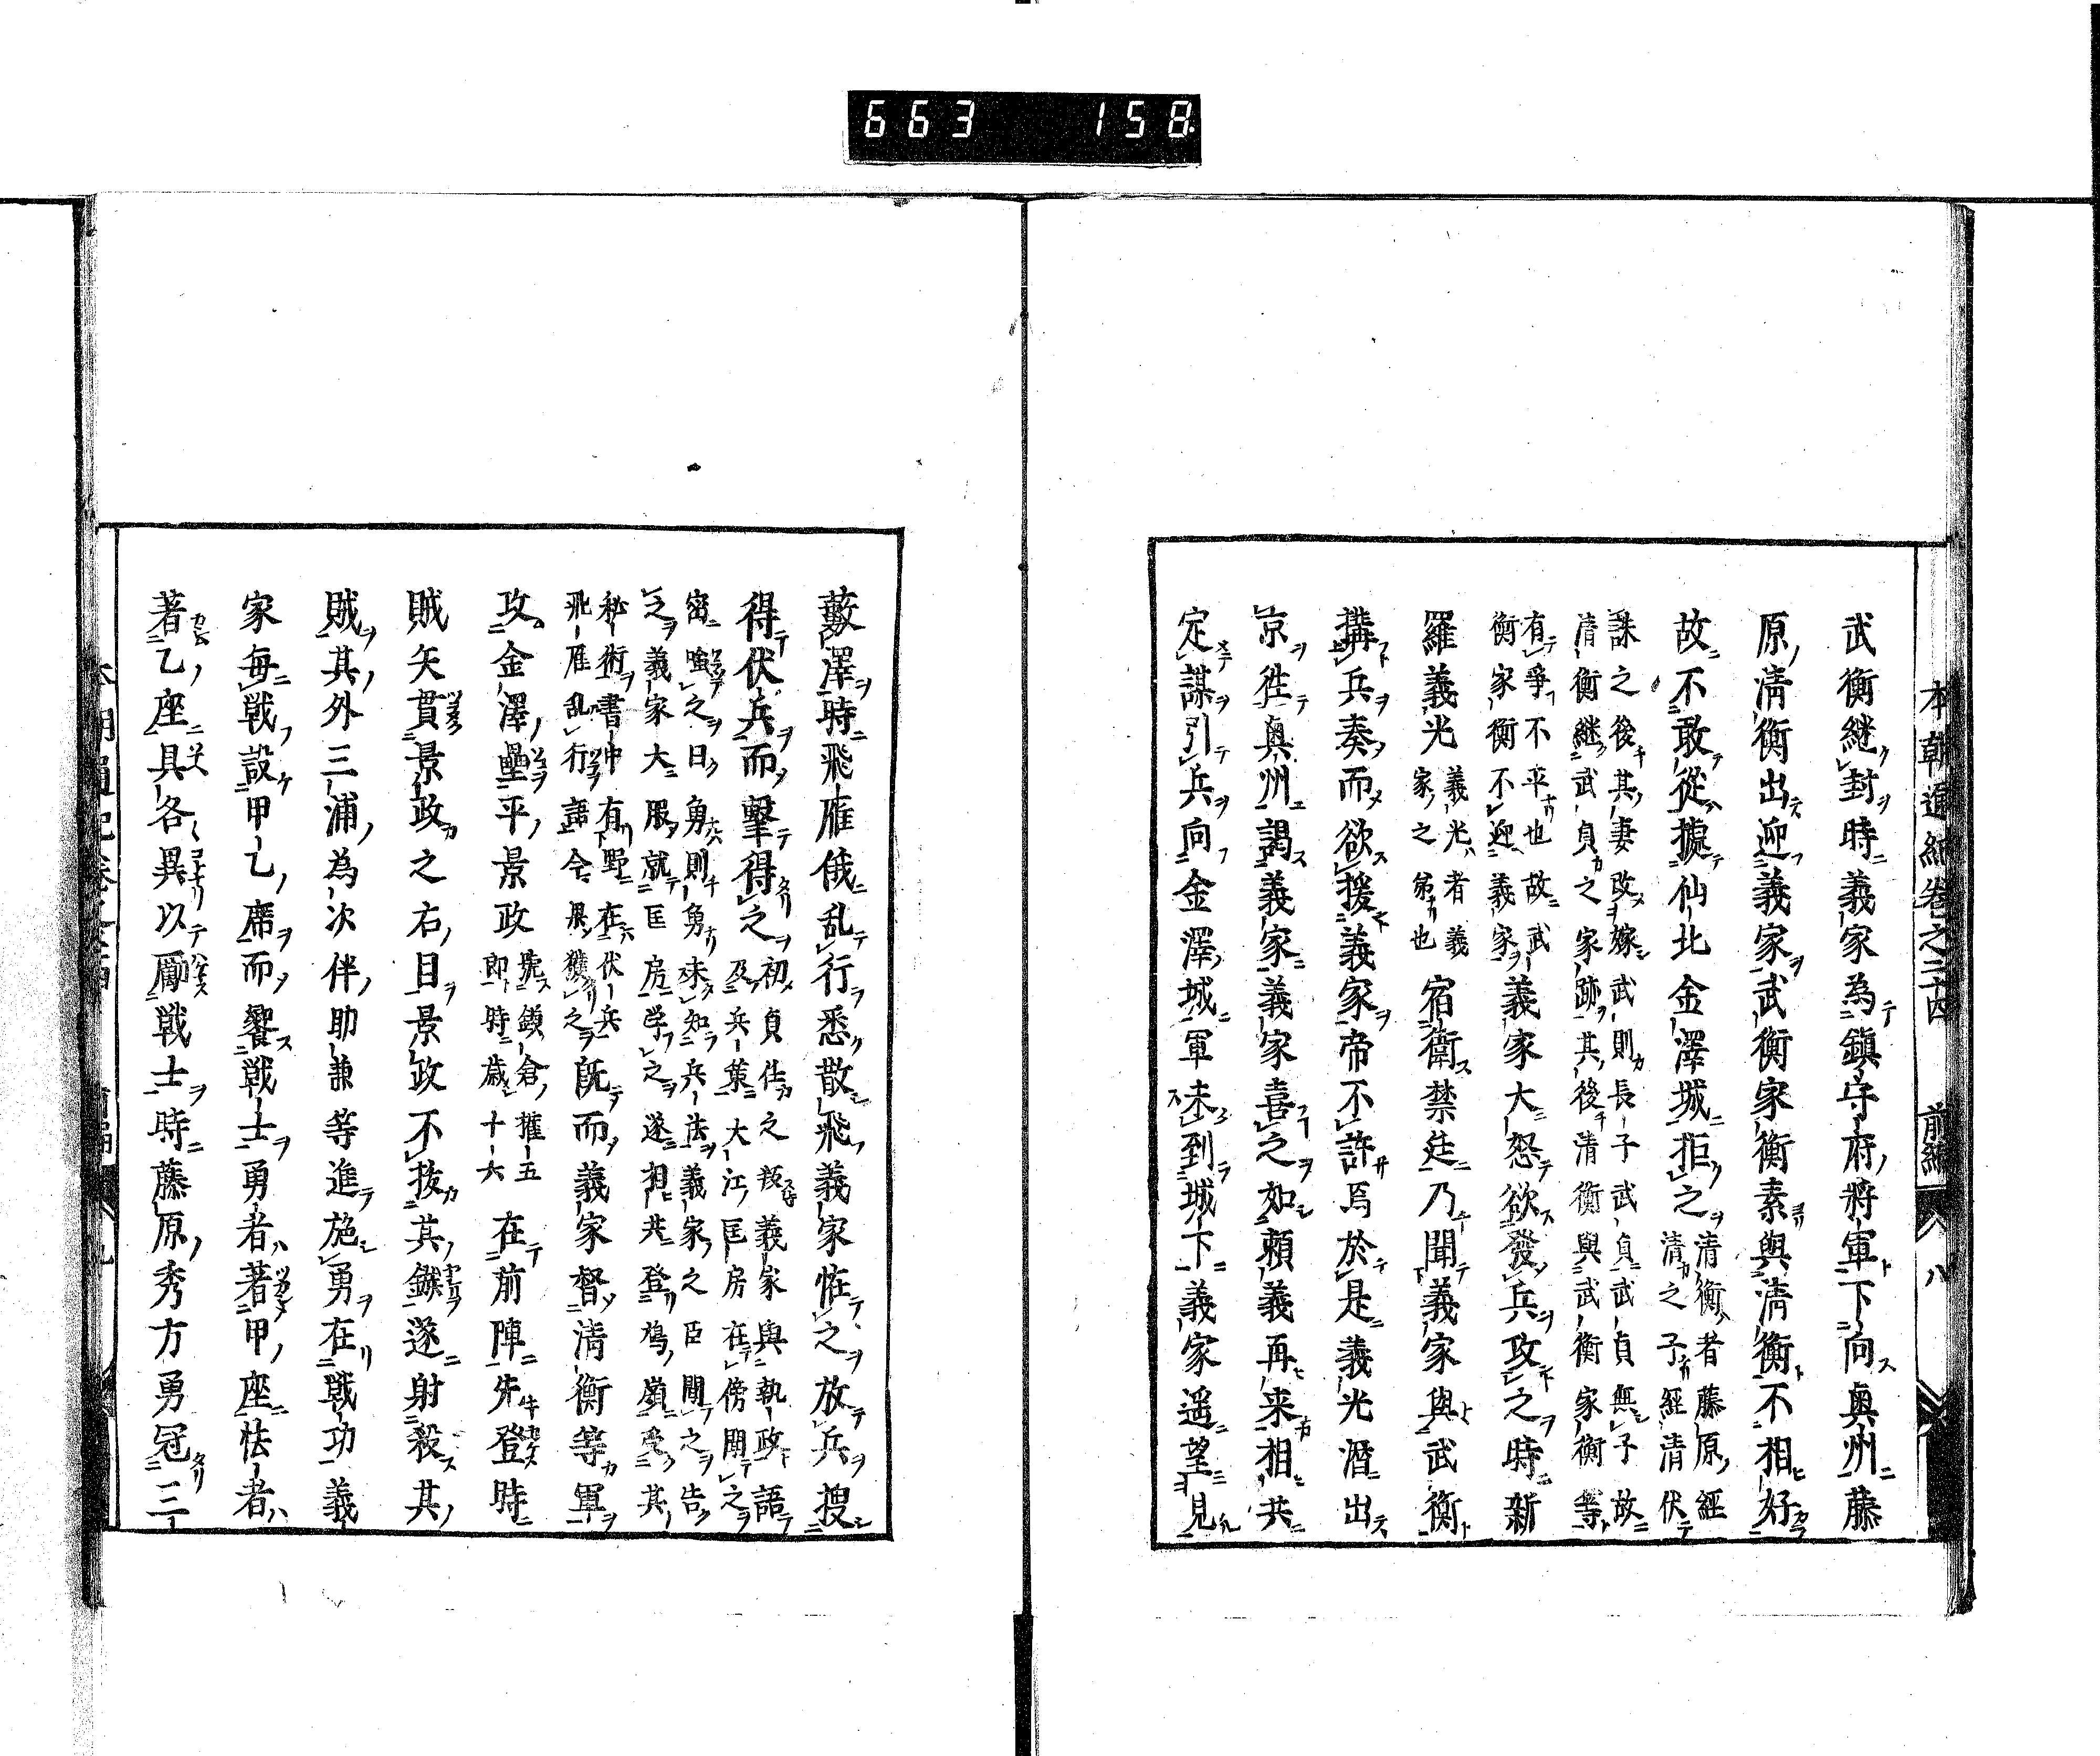 663 158
本朝通紀卷之二十四 前編 八
武衡継封時義家為鎮守府將軍下向奥州藤
原清衡出迎義家武衡家衡素與清衡不相好
故不敢從據仙北金澤城拒之
清衡者藤原經
清之子經清伏
誅之後其妻改嫁武則長子武貞武貞無子故
清衡継武貞之家跡其後清衡與武衡家衡等
有爭不平也故武
衡家衡不迎義家
義家大怒欲發兵攻之時新
羅義光
義光者義
家之弟也
宿衛禁廷乃聞義家與武衡
搆兵奏而欲援義家帝不許焉於是義光潛出
京徃奥州謁義家義家喜之如頼義再来相共
定謀引兵向金澤城軍未到城下義家遥望見
藪澤時飛雁俄乱行悉散飛義家恠之放兵搜
得伏兵而擊得之
初貞任之叛義家與執政語
及兵葉大江匡房在傍聞之
密嗤之曰勇則勇未知兵法義家之臣聞之告
之義家大服就匡房学之遂相共登鳩嶺受其
秘術書中有野在伏兵
飛雁乱行語今果獲之
既而義家督清衡等軍
攻金澤壘平景政
號鎌倉權五
郎時歳十六
在前陣先登時
賊矢貫景政之右目景政不拔其鏃遂射殺其
賊其外三浦為次伴助兼等進施勇在戰功義
家毎戦設甲乙席而饗戰士勇者著甲座怯者
著乙座具各異以勵戰士時藤原秀方勇冠三